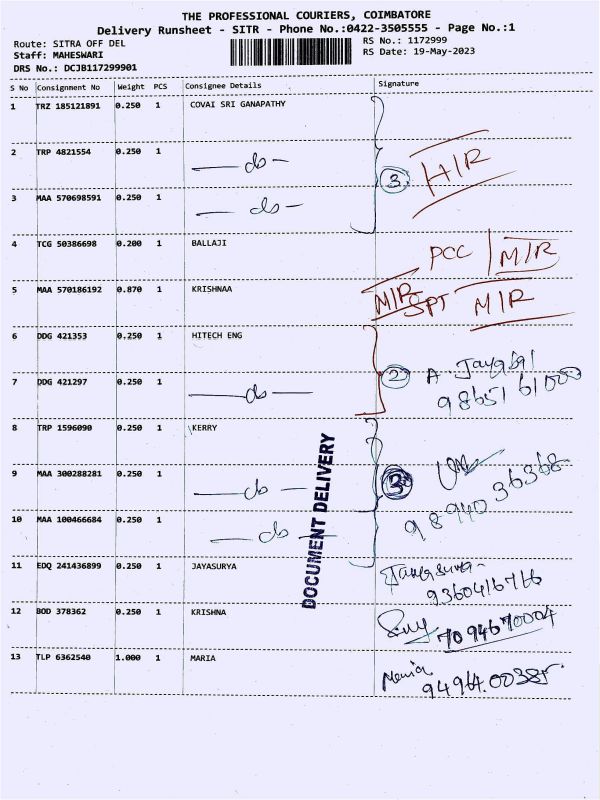 THE PROFESSIONAL COURIERS, COIMBATORE
Delivery Runsheet - SITR - Phone No.:0422-3505555 - Page No.:1
Route: SITRA OFF DEL
Staff: MAHESWARI
DRS No.: DCJB117299901
RS No.: 1172999
RS Date: 19-May-2023
S No Consignment No Weight PCS Consignee Details Signature
1 TRZ 185121891 0.250 1 COVAI SRI GANAPATHY
2 TRP 4821554 0.250 1 — do —
3 MAA 570698591 0.250 1 — do —
3
4 TCG 50386698 0.200 1 BALLAJI PCC | M/R
5 MAA 570186192 0.870 1 KRISHNAA M/R SPT M/R
6 DDG 421353 0.250 1 HITECH ENG
7 DDG 421297 0.250 1 — do —
2 A
8 TRP 1596090 0.250 1 KERRY
9 MAA 300288281 0.250 1 — do —
3
98940 36368
10 MAA 100466684 0.250 1 — do —
DOCUMENT DELIVERY
11 EDQ 241436899 0.250 1 JAYASURYA
9360416766
12 BOD 378362 0.250 1 KRISHNA
7094670004
13 TLP 6362540 1.000 1 MARIA Maria